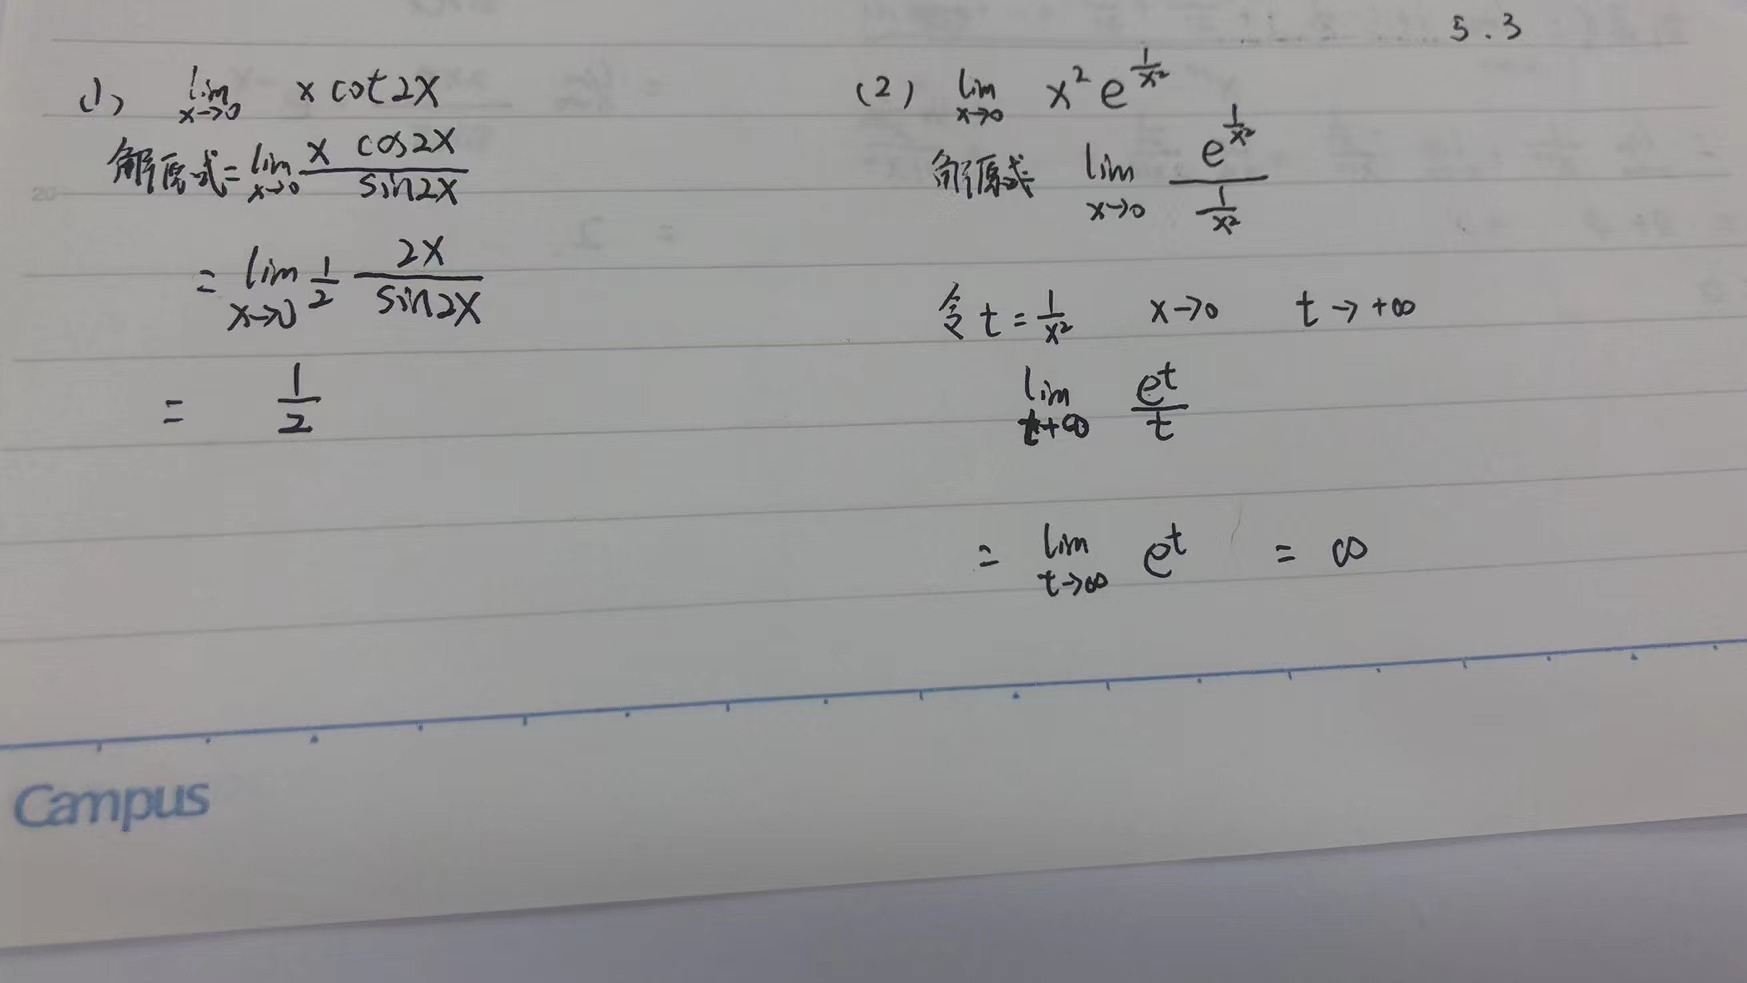 5.3
(1) lim x→0 x cot2x
解原式= lim x→0 x cos2x / sin2x
= lim x→0 1/2 2x / sin2x
= 1/2
(2) lim x→0 x² e^(1/x²)
解原式 lim x→0 e^(1/x²) / (1/x²)
令 t = 1/x² x→0 t→+∞
lim t+∞ e^t / t
= lim t→∞ e^t = ∞
Campus